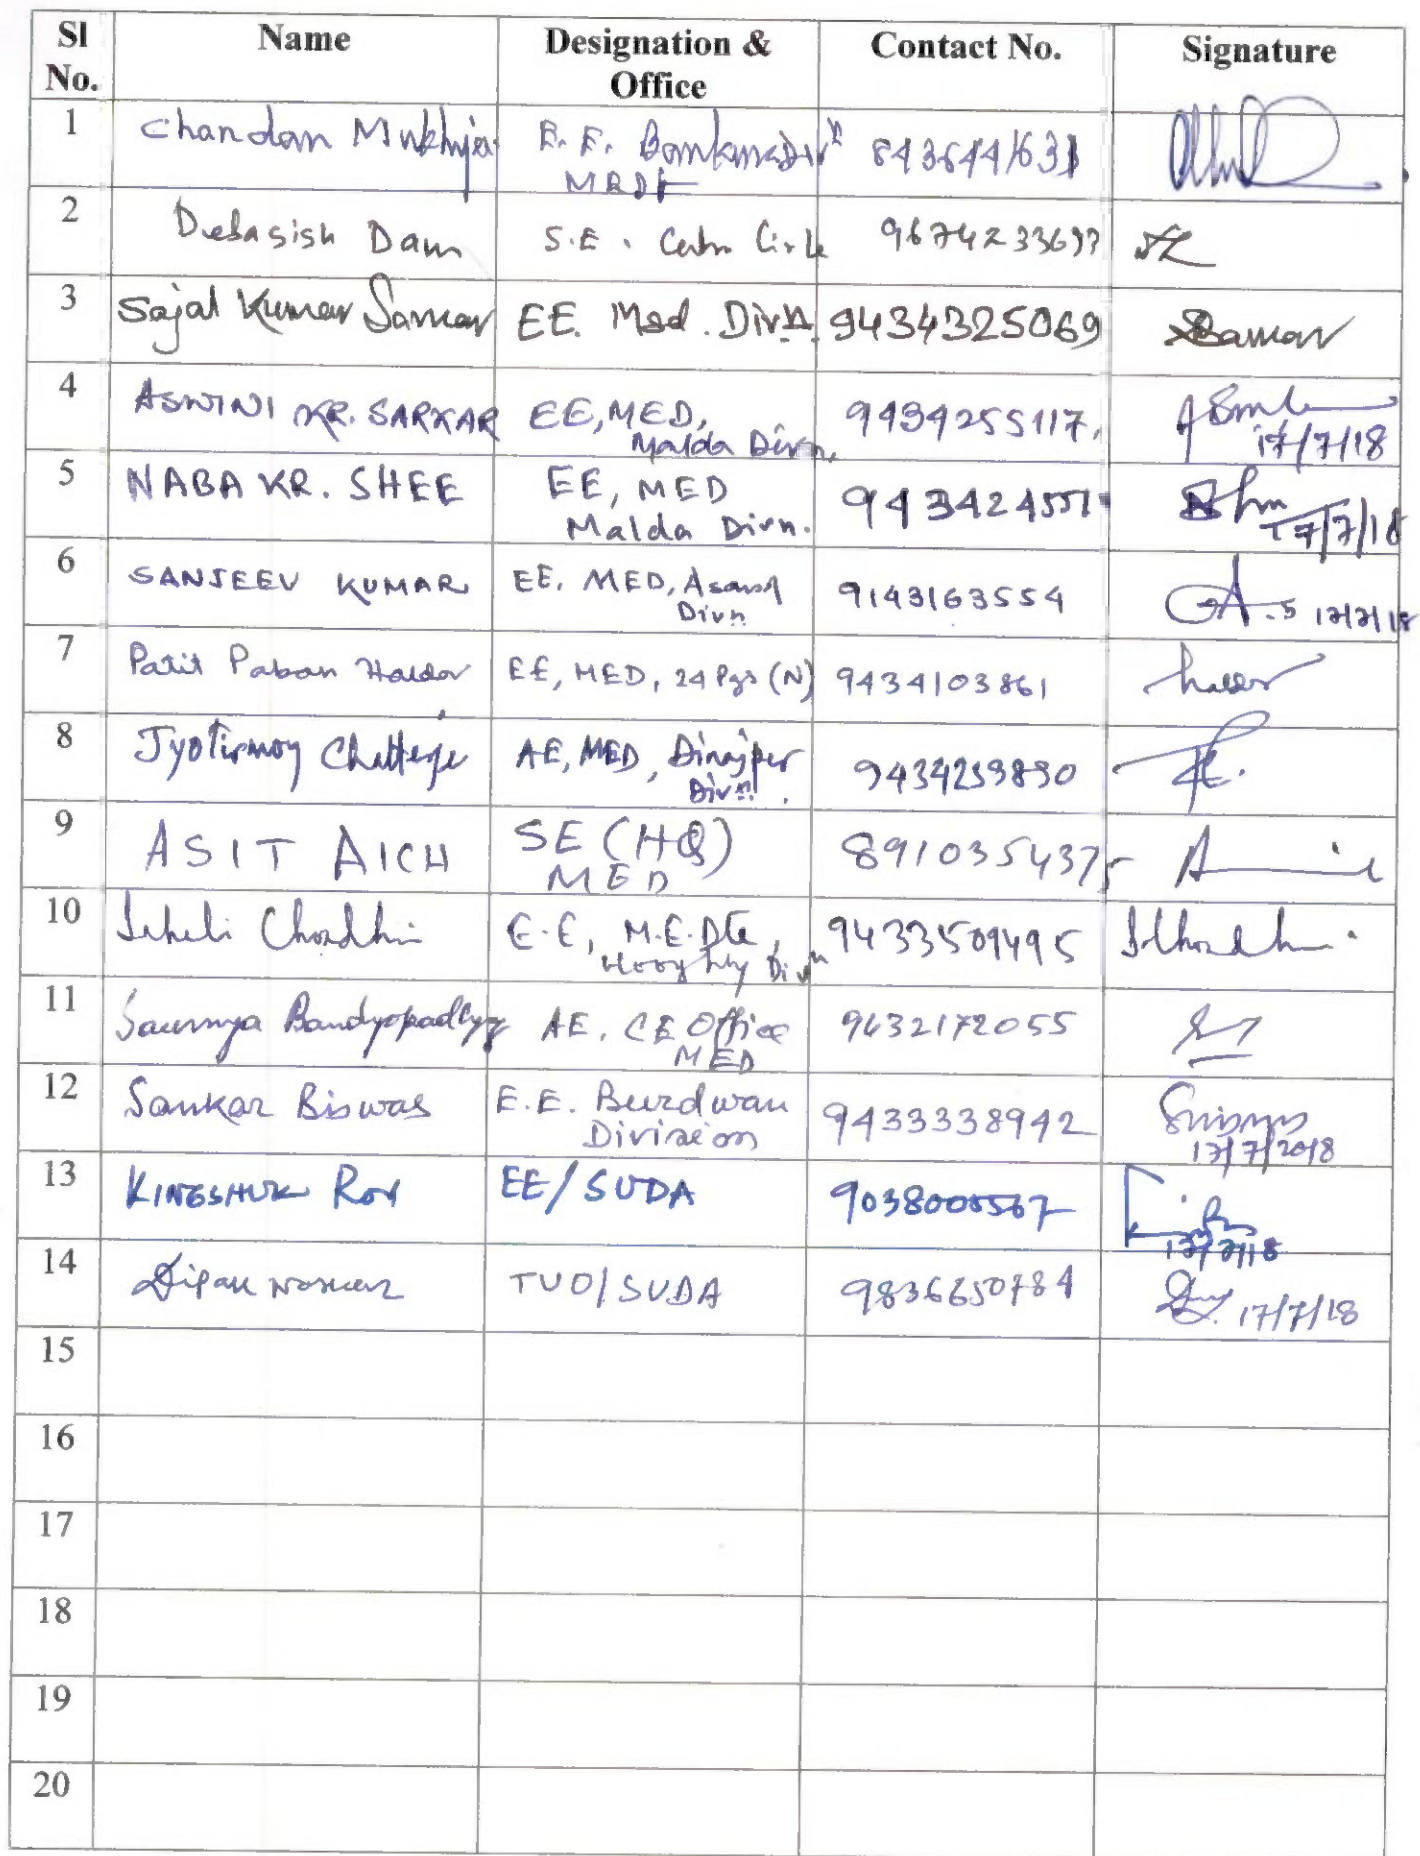 Sl No. Name Designation & Office Contact No. Signature
1 Chandan Mukhja E.E. 8436441631
2 Debasish Dam S.E. 
3 Sajal Kumar Sarkar EE. Msd. Divn. 9434325069 Sarkar
4 ASWINI KR. SARKAR EE, MED, Malda Divn. 9434255117. 17/7/18
5 NABA KR. SHEE EE, MED Malda Divn. 17/7/18
6 SANJEEV KUMAR EE. MED, Divn 9143163554 17/7/18
7 Patit Paban Haldar EE, MED, 24 Pgs (N) 9434103861
8 Jyotirmoy AE, MED, Dinajpur Divn. 
9 ASIT AICH SE (HQ) MED 8910354375
10 E.E, M.E.Dte, Hooghly Divn 9433509495
11 Saumya AE. CE Office MED 9432172055
12 Sankar Biswas E.E. Burdwan Division 9433338942 17/7/2018
13 KINGSHUK ROY EE/SUDA 9038000567 17/7/18
14 TUO/SUDA 9836650784 17/7/18
15
16
17
18
19
20